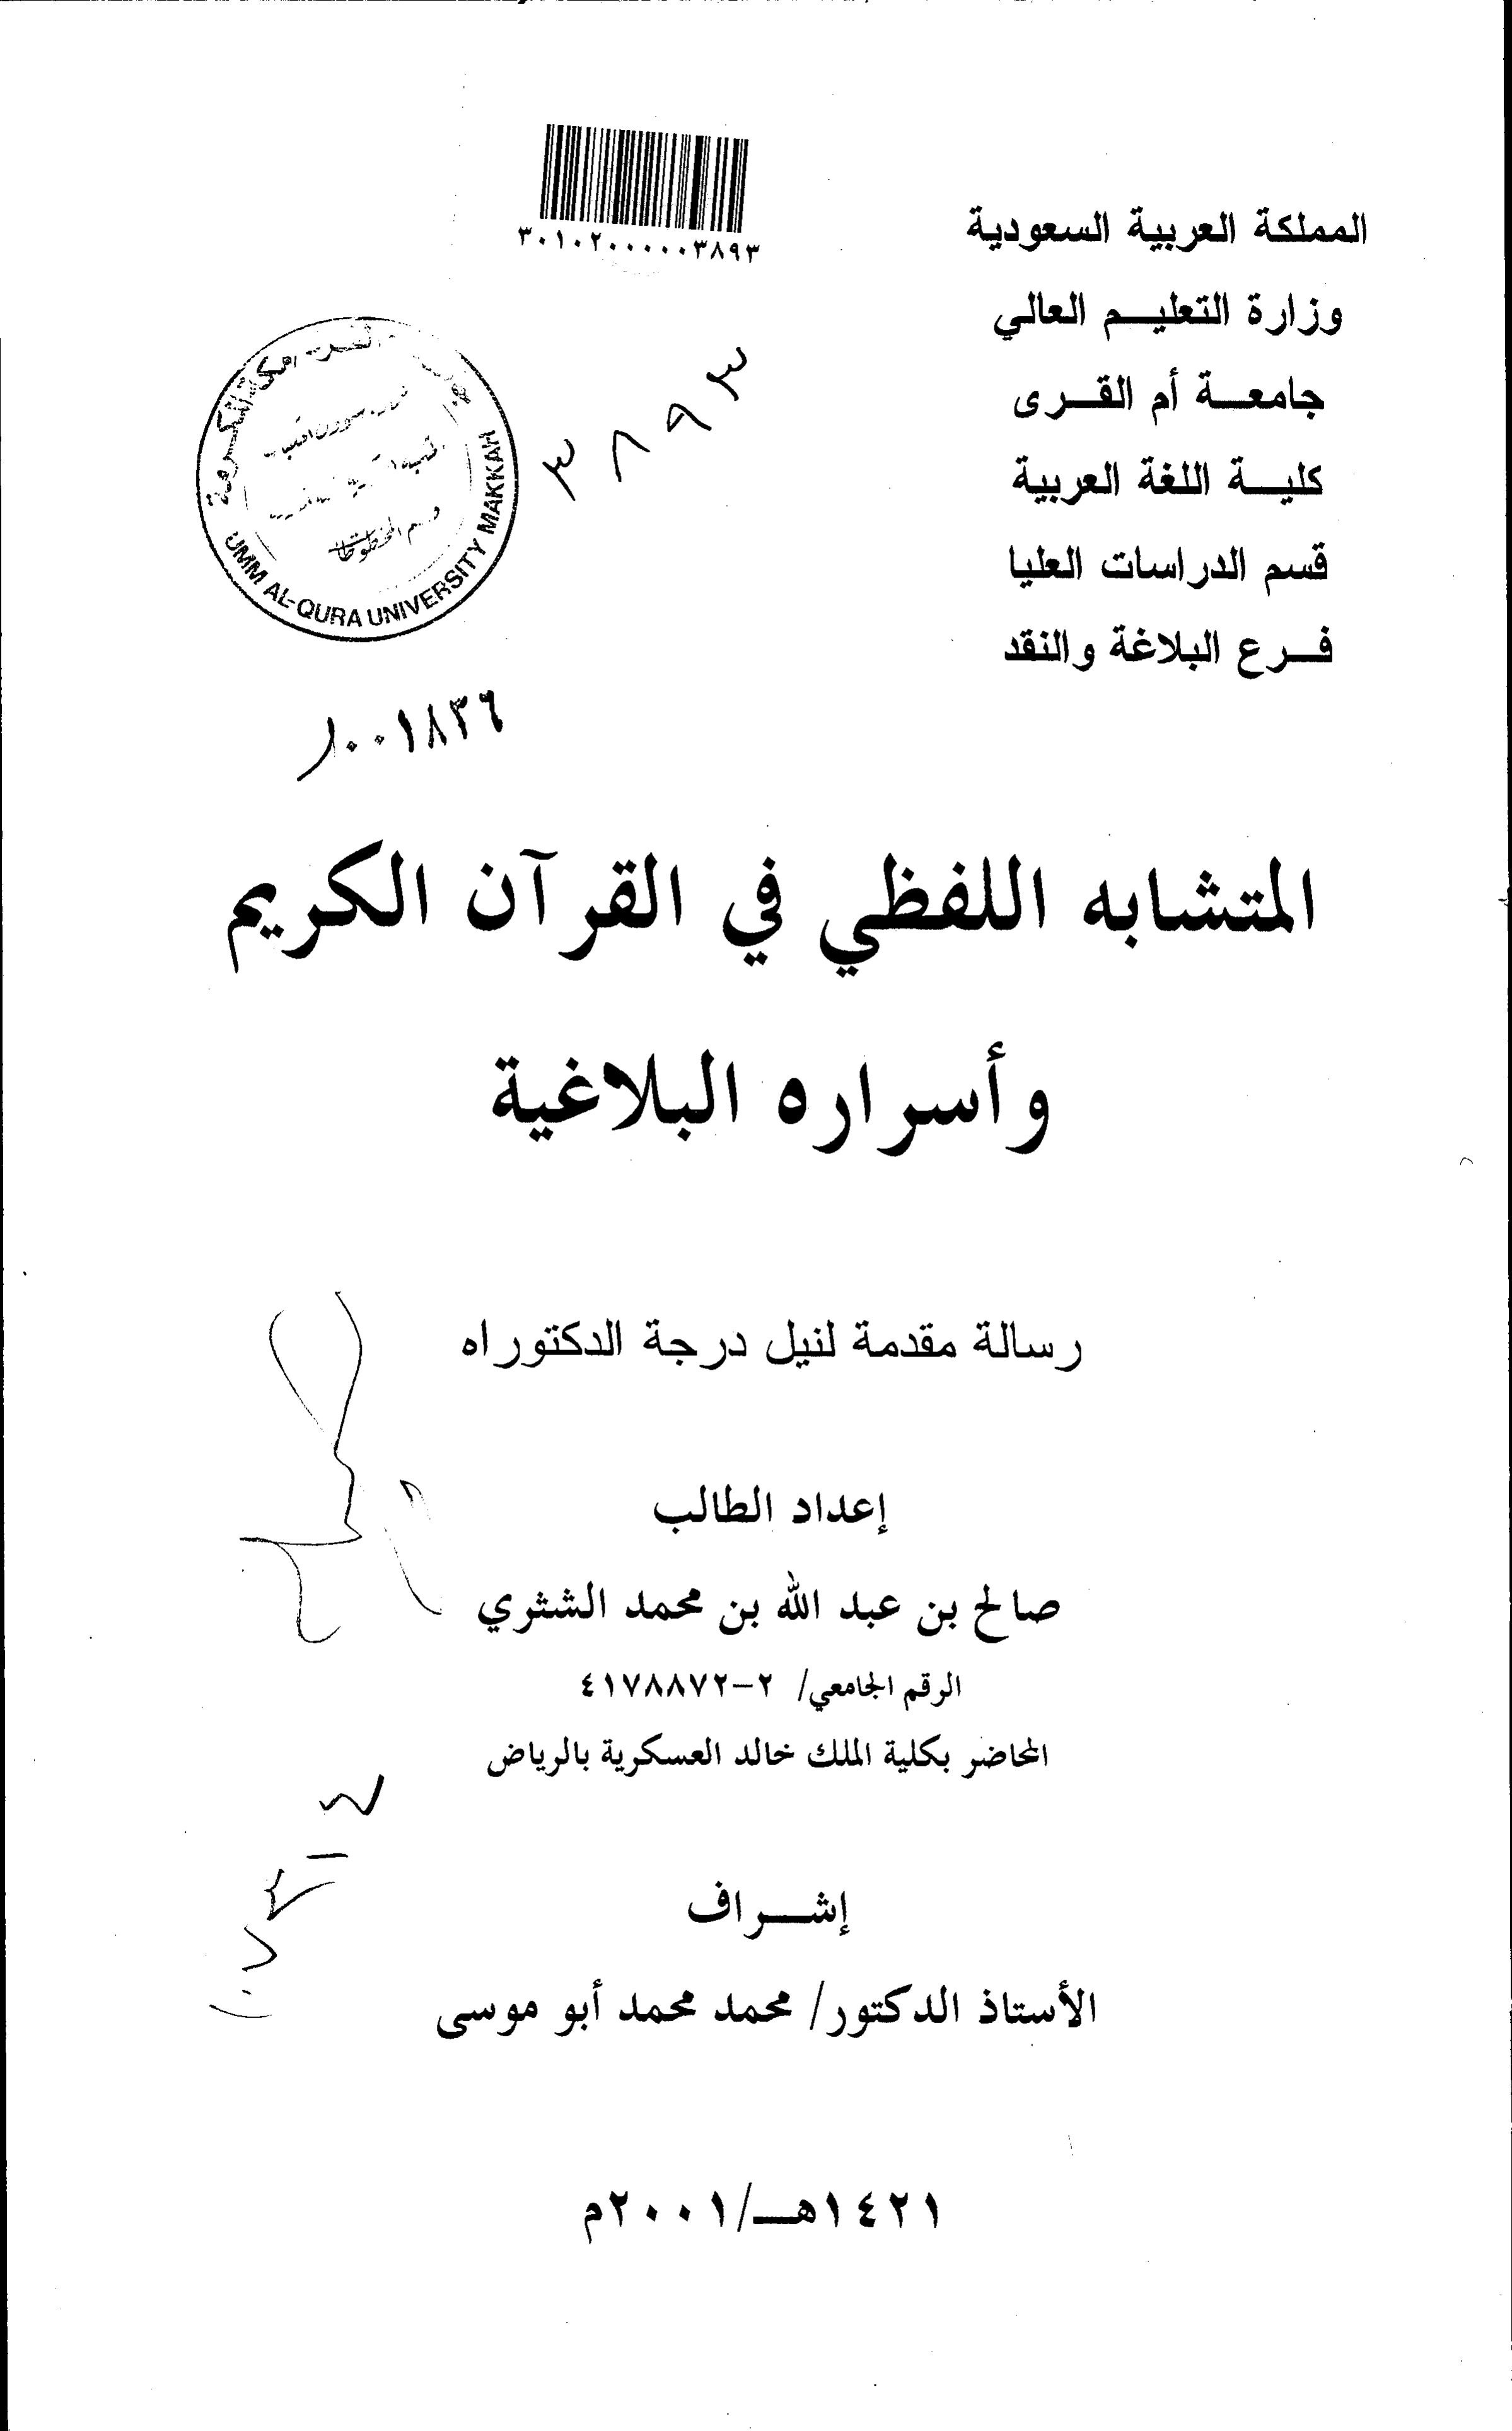 المملكة العربية السعودية
وزارة التعليم العالي
جامعة أم القرى
كلية اللغة العربية
قسم الدراسات العليا
فرع البلاغة والنقد
٣٠١٠٢٠٠٠٠٠٣٨٩٣
٣٨٩٣
المكرمة
قسم المخطوطات
UMM AL-QURA UNIVERSITY MAKKAH
١٠٠١٨٣٦
المتشابه اللفظي في القرآن الكريم
وأسراره البلاغية
رسالة مقدمة لنيل درجة الدكتوراه
إعداد الطالب
صالح بن عبد الله بن محمد الشثري
الرقم الجامعي/ ٢-٤١٧٨٨٧٢
المحاضر بكلية الملك خالد العسكرية بالرياض
إشراف
الأستاذ الدكتور/ محمد محمد أبو موسى
١٤٢١هـ/٢٠٠١م